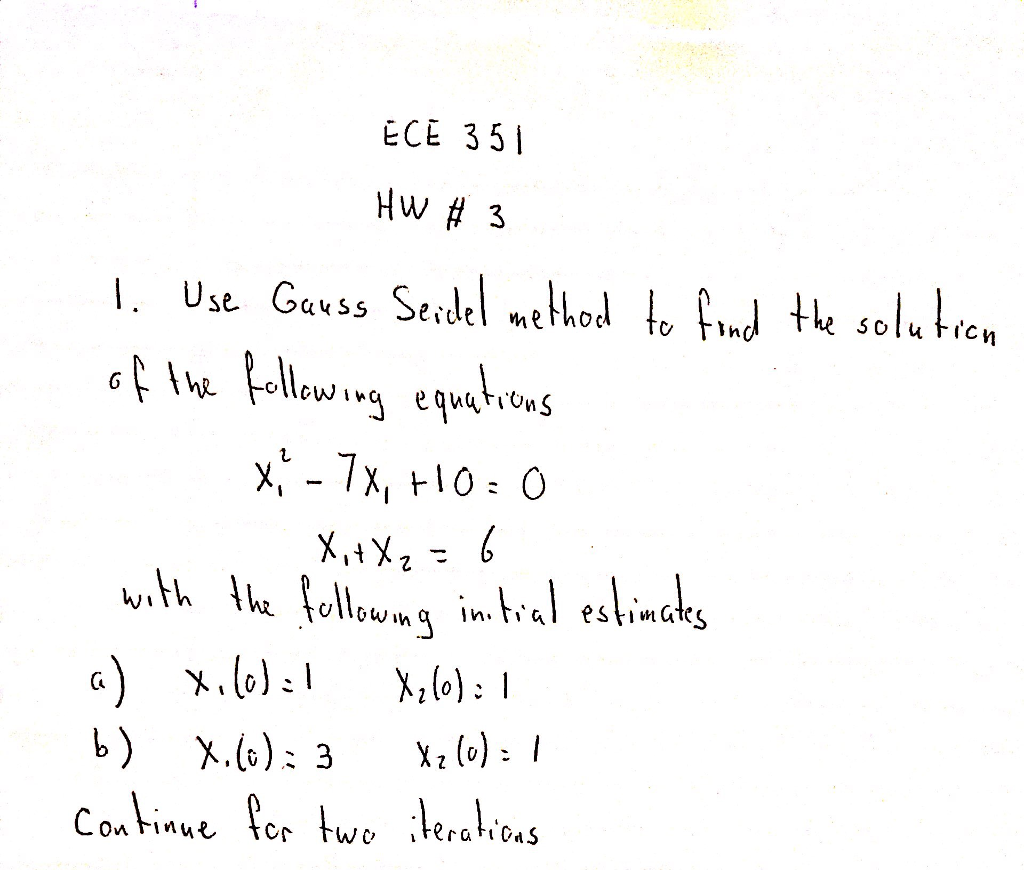 ECE 351
HW # 3
1. Use Gauss Seidel method to find the solution
of the following equations
x₁² - 7x₁ + 10 = 0
x₁ + x₂ = 6
with the following initial estimates
a) x₁(0) = 1 x₂(0) = 1
b) x₁(0) = 3 x₂(0) = 1
Continue for two iterations